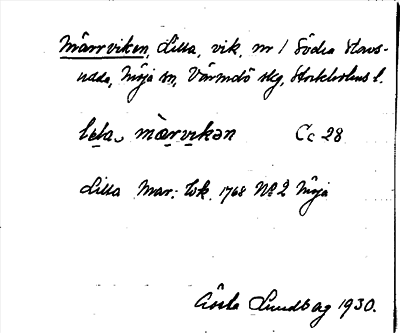 Märrviken, Lilla, vik, nr 1 Södra Stavs-
udda, Möja sn, Värmdö skg, Stockholms l.
lɩla märvikən Cc 28
Lilla Mar: lok. 1768 No 2 Möja
Gösta Lundberg 1930.